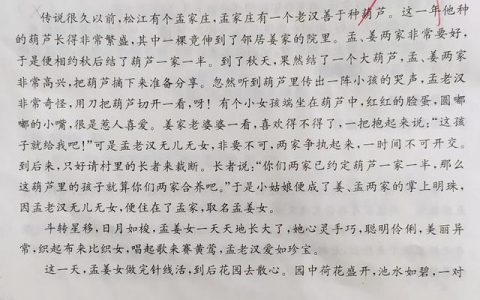 传说很久以前,松江有个孟家庄,孟家庄有一个老汉善于种葫芦。这一年他种
的葫芦长得非常繁盛,其中一棵竟伸到了邻居姜家的院里。孟、姜两家非常要好,
于是便相约秋后结了葫芦一家一半。到了秋天,果然结了一个大葫芦,孟、姜两家
非常高兴,把葫芦摘下来准备分享。忽然听到葫芦里传出一阵小孩的哭声,孟老汉
非常奇怪,用刀把葫芦切开一看,呀!有个小女孩端坐在葫芦中,红红的脸蛋,圆嘟
嘟的小嘴,很是惹人喜爱。姜家老婆婆一看,喜欢得不得了,一把抱起来说:“这孩
子就给我吧!”可是孟老汉无儿无女,非要不可,两家争执起来,一时间不可开交。
到后来,只好请村里的长者来裁断。长者说:“你们两家已约定葫芦一家一半,那么
这葫芦里的孩子就算你们两家合养吧。”于是小姑娘便成了姜、孟两家的掌上明珠,
因孟老汉无儿无女,便住在了孟家,取名孟姜女。
斗转星移,日月如梭,孟姜女一天天地长大了,她心灵手巧,聪明伶俐,美丽异
常,织起布来比织女,唱起歌来赛黄莺,孟老汉爱如珍宝。
这一天,孟姜女做完针线活,到后花园去散心。园中荷花盛开,池水如碧,一对